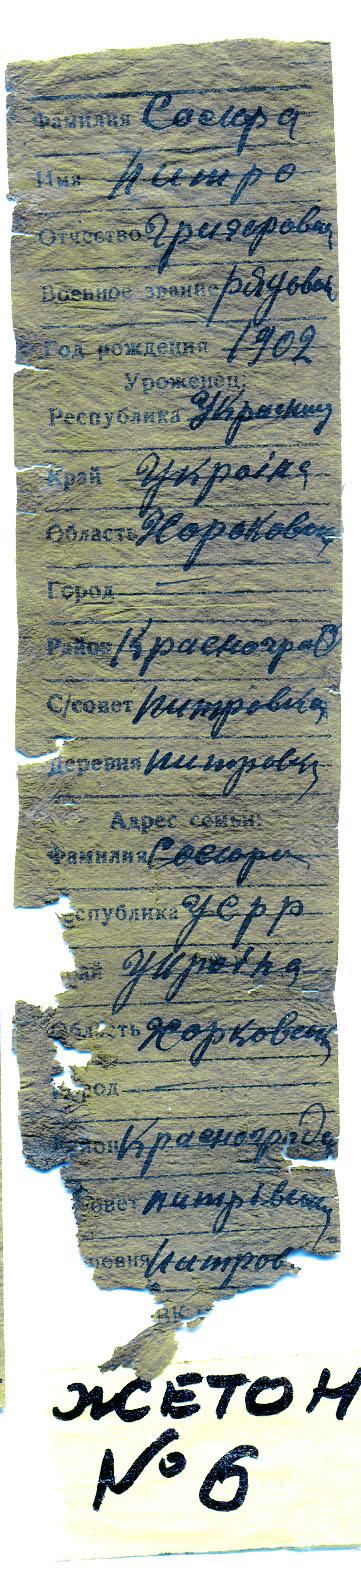 Фамилия Сосюра
Имя Питро
Отчество Григорович
Военное звание рядовой
Год рождения 1902
Уроженец:
Республика
Край Украіна
Область
Город —
Район Красноград
С/совет питровка
Деревня питровка
Адрес семьи:
Фамилия Сосюра
еспублика УСРР
ай Украіна
Область
ород —
айон
овет
ревня Питров
ВК
ЖЕТОН
№ 6